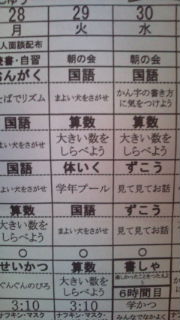 28 29 30
月 火 水
人面談配布
読書・自習 朝の会 朝の会
おんがく 国語 国語
ことばでリズム まよい犬をさがせ かん字の書き方に気をつけよう
国語 算数 算数
まよい犬をさがせ 大きい数をしらべよう 大きい数をしらべよう
国語 体いく ずこう
まよい犬をさがせ 学年プール 見て見てお話
算数 国語 ずこう
大きい数をしらべよう まよい犬をさがせ 見て見てお話
○ ○ ○
せいかつ 算数 書しゃ
ぐんぐんのびろ 大きい数をしらべよう
6時間目
3:10 3:10 学かつ
ナフキン・マスク ナフキン・マスク みんなでなかよく